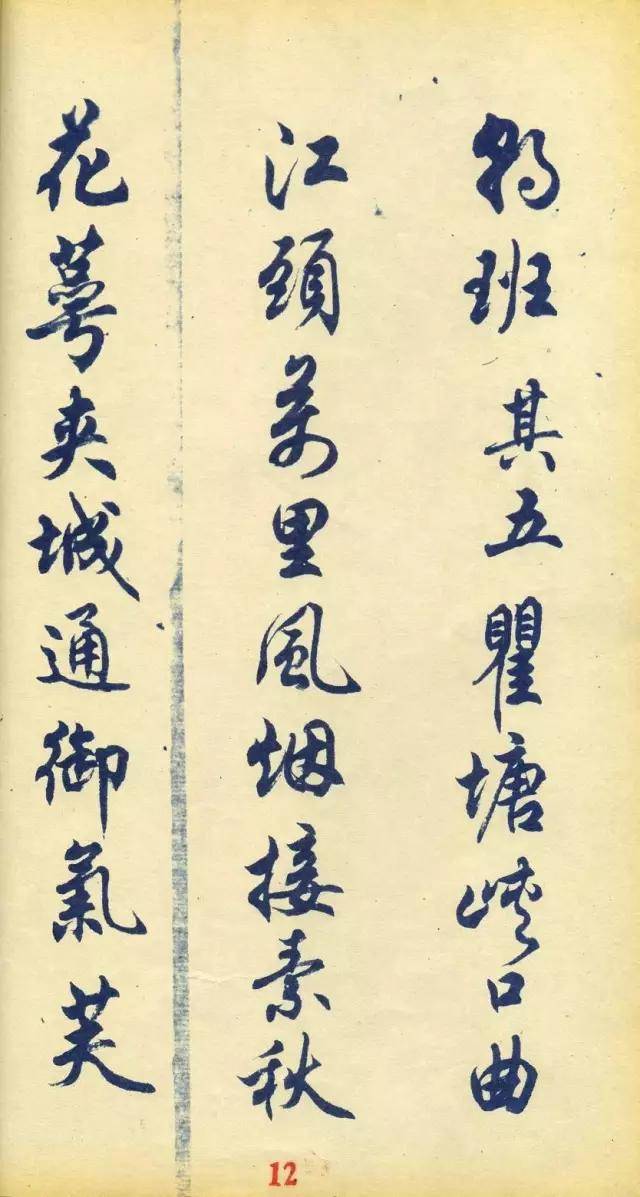 朝班其五瞿塘峡口曲
江頭萬里風烟接素秋
花萼夾城通御氣芙
12